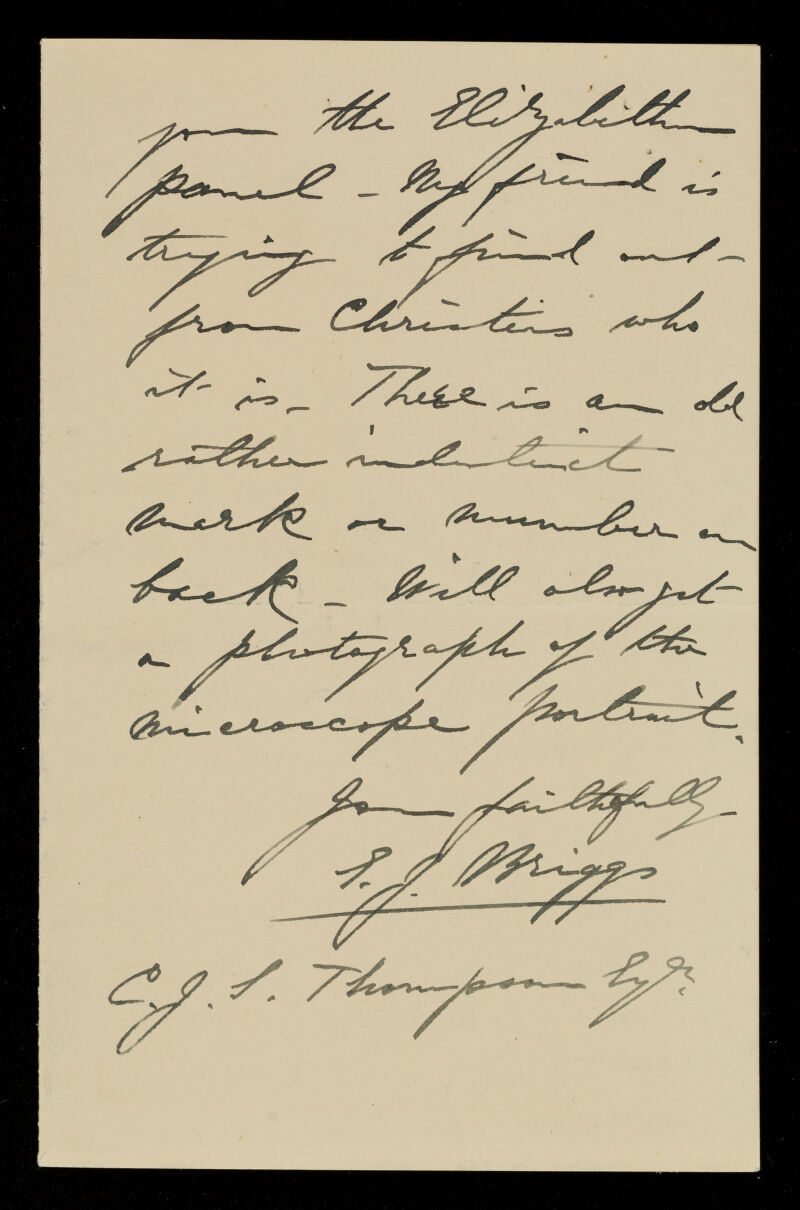 you the Elizabethan
panel – My friend is
trying to find out –
from Christies who
it is – There is an old
rather indistinct
mark or number on
back – Will also get
a photograph of the
microscope portrait.
Yours faithfully
E. J. Briggs
C. J. S. Thompson Esqr.